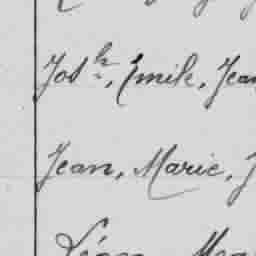 Jos^h, Emile, Jean
Jean, Marie, J
Léon